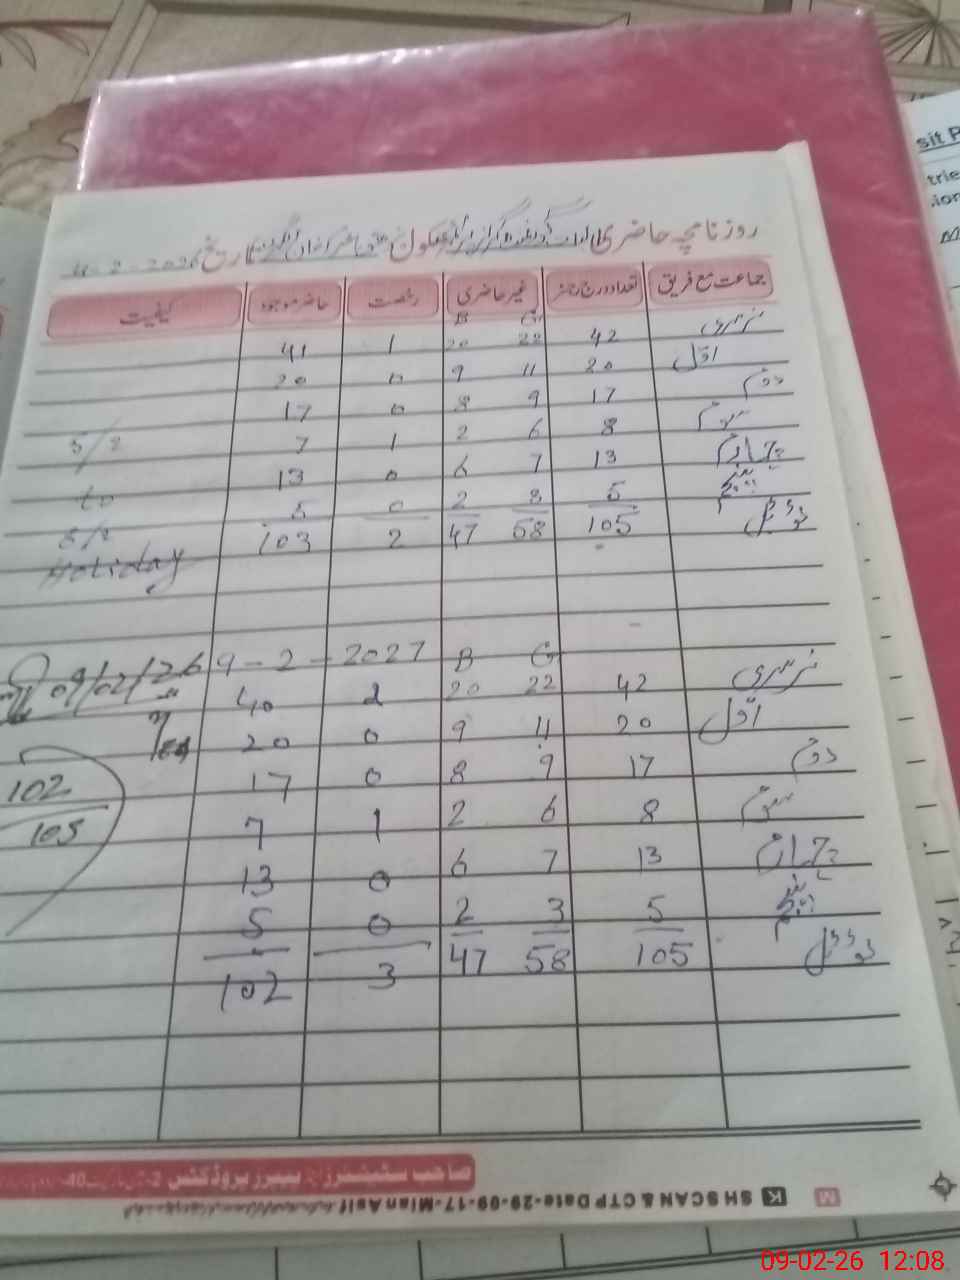 sit P
trie
ion
روزنامچہ حاضری سکول تاریخ 4-2-2026
جماعت مع فریق تعداد درج رجسٹر غیر حاضری رخصت حاضر موجود کیفیت
G B
نرسری 42 22 20 1 41
اوّل 20 11 9 0 20
دوم 17 9 8 0 17
سوم 8 6 2 1 7 5/2
چہارم 13 7 6 0 13 to
پنجم 5 3 2 0 5 8/2
ٹوٹل 105 58 47 2 103 Holiday
09/02/26 9-2-2027 B G
نرسری 42 22 20 2 40
اوّل 20 11 9 0 20
دوم 17 9 8 0 17 102
سوم 8 6 2 1 7 105
چہارم 13 7 6 0 13
پنجم 5 3 2 0 5
ٹوٹل 105 58 47 3 102
صاحب سٹیشنرز اینڈ پیپرز پروڈکٹس
SH SCAN & CTP Date-29-09-17-Mian Asif
K M
09-02-26 12:08